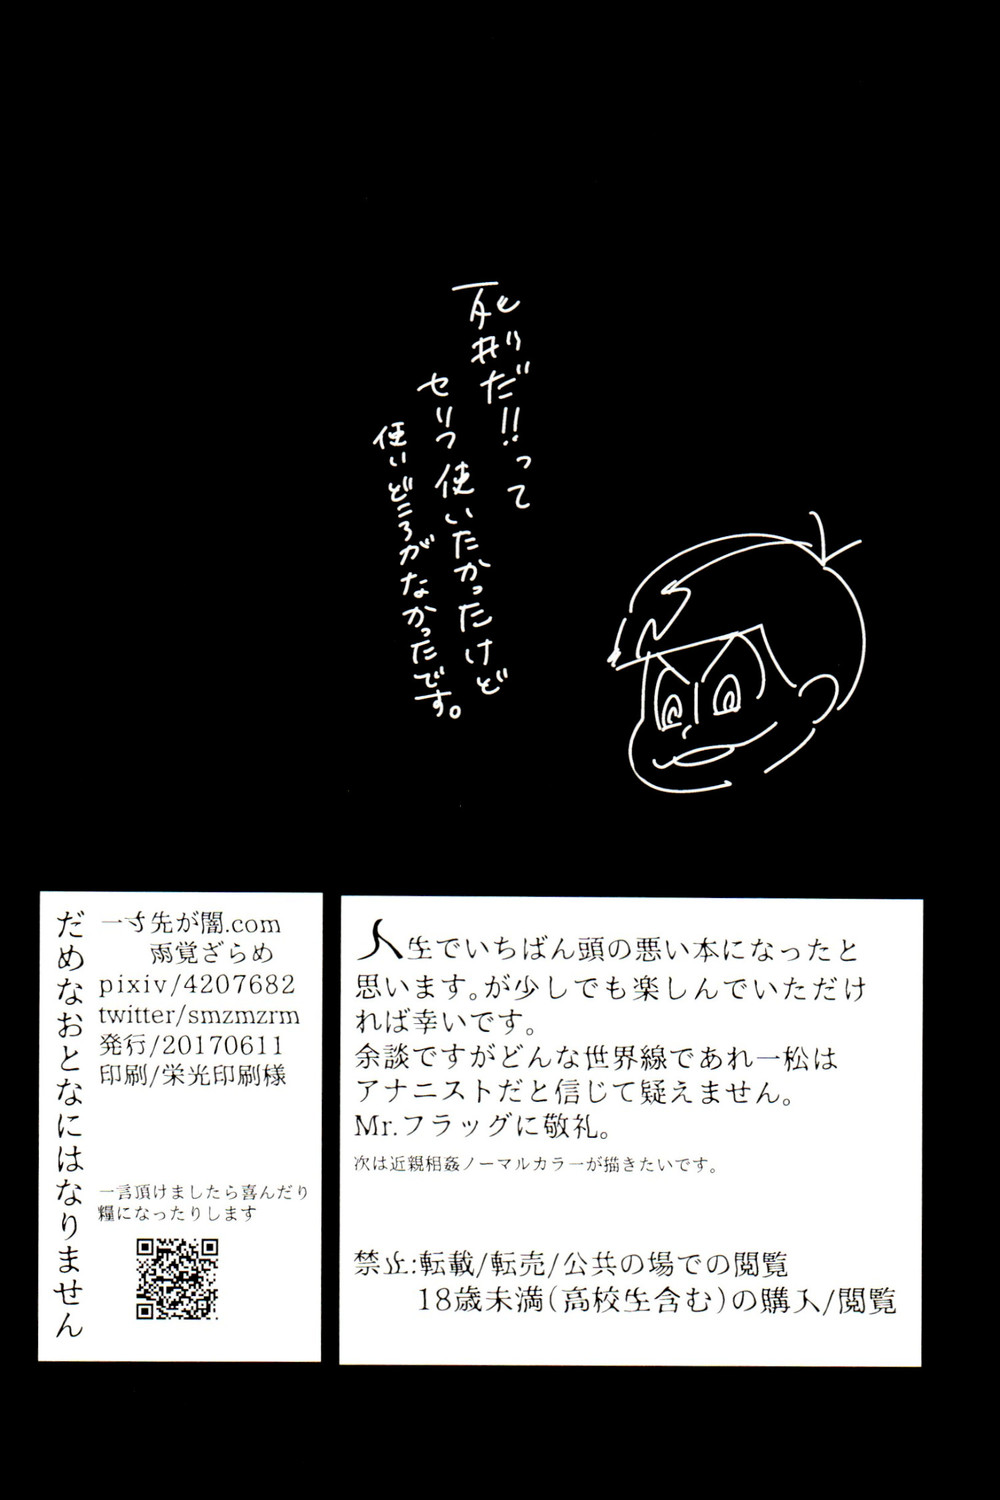 死刑だ!!って
セリフ使いたかったけど
使いどころがなかったです。
だめなおとなにはなりません
一寸先が闇.com
雨覚ざらめ
pixiv/4207682
twitter/smzmzrm
発行/20170611
印刷/栄光印刷様
一言頂けましたら喜んだり
糧になったりします
人生でいちばん頭の悪い本になったと
思います。が少しでも楽しんでいただけ
れば幸いです。
余談ですがどんな世界線であれ一松は
アナニストだと信じて疑えません。
Mr.フラッグに敬礼。
次は近親相姦ノーマルカラーが描きたいです。
禁止:転載/転売/公共の場での閲覧
18歳未満(高校生含む)の購入/閲覧